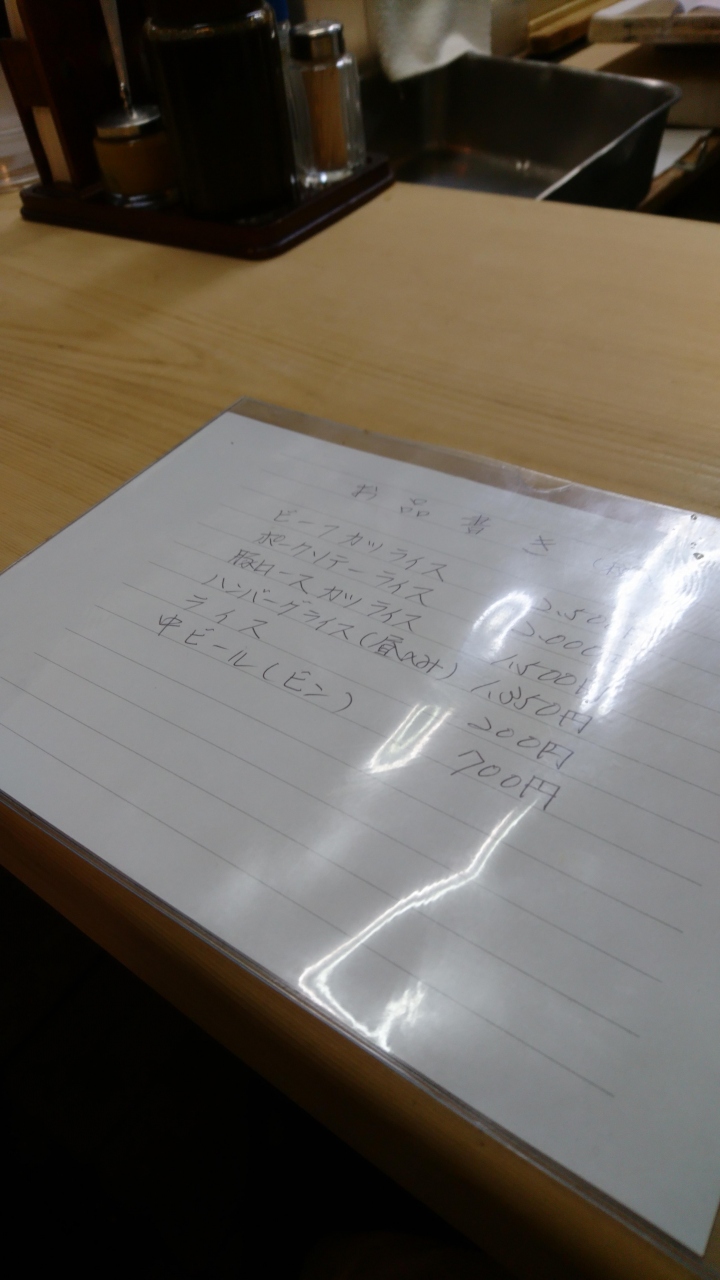 お品書き
ビーフカツライス 2.50
ポークソテーライス 2.000
豚ロースカツライス 1.500円
ハンバーグライス(昼のみ) 1.350円
ライス 200円
中ビール(ビン) 700円